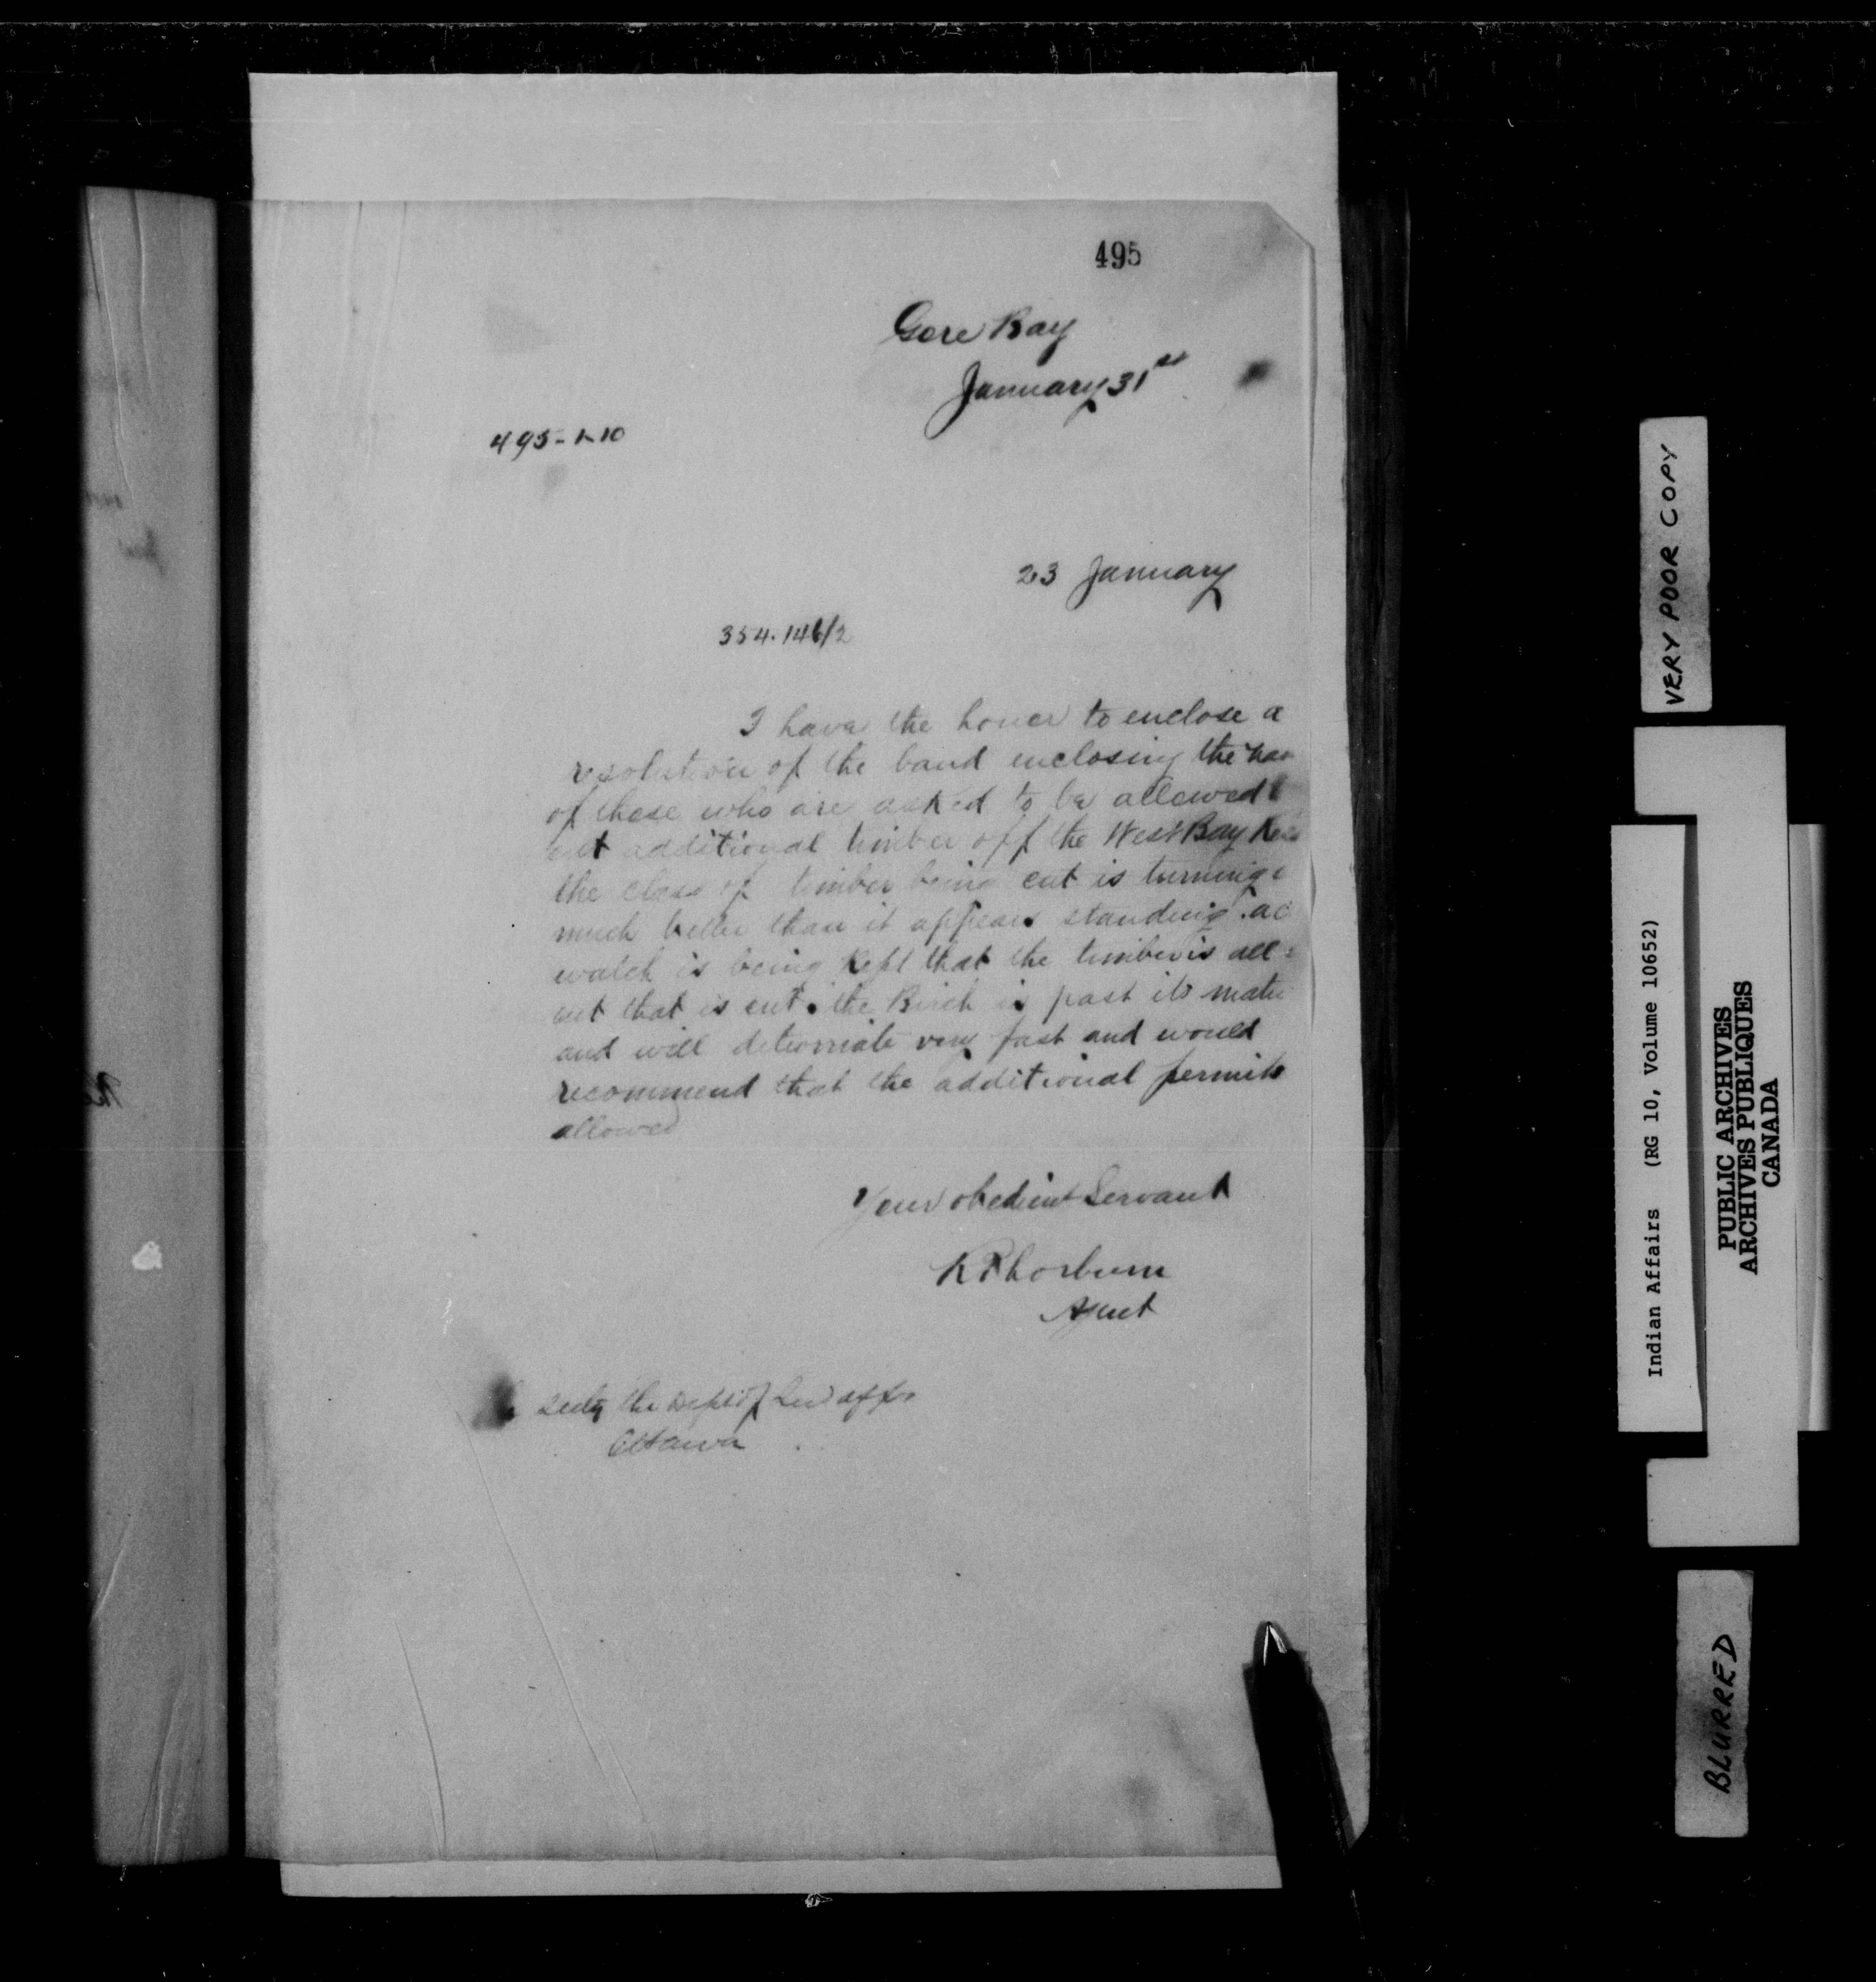 495
Gore Bay
January 31st
495-1-10
23 January
354.146/2
I have the honor to enclose a
resolution of the band enclosing the
of those who are asked to be allowed
cut additional timber off the West Bay
the class of timber being cut is turning
much better than it appears standing. a
watch is being kept that the timber is all
cut that is cut. the Birch is past its
and will deteorriate very fast and would
recommend that the additional permits
allowed
Your obedient Servant
R Thorburn
Agent
Secty the Dept of Ind affrs
Ottawa
VERY POOR COPY
Indian Affairs (RG 10, Volume 10652)
PUBLIC ARCHIVES
ARCHIVES PUBLIQUES
CANADA
BLURRED